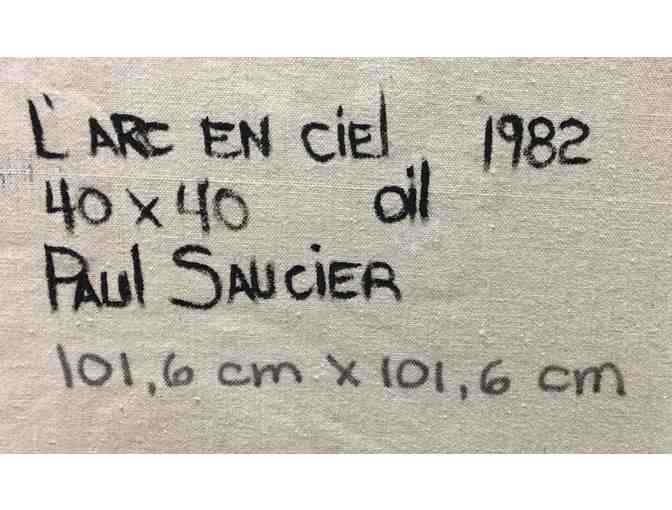 L'ARC EN CiEl 1982
40 x 40 oil
PAUl SAUCiER
101,6 cm x 101,6 cm